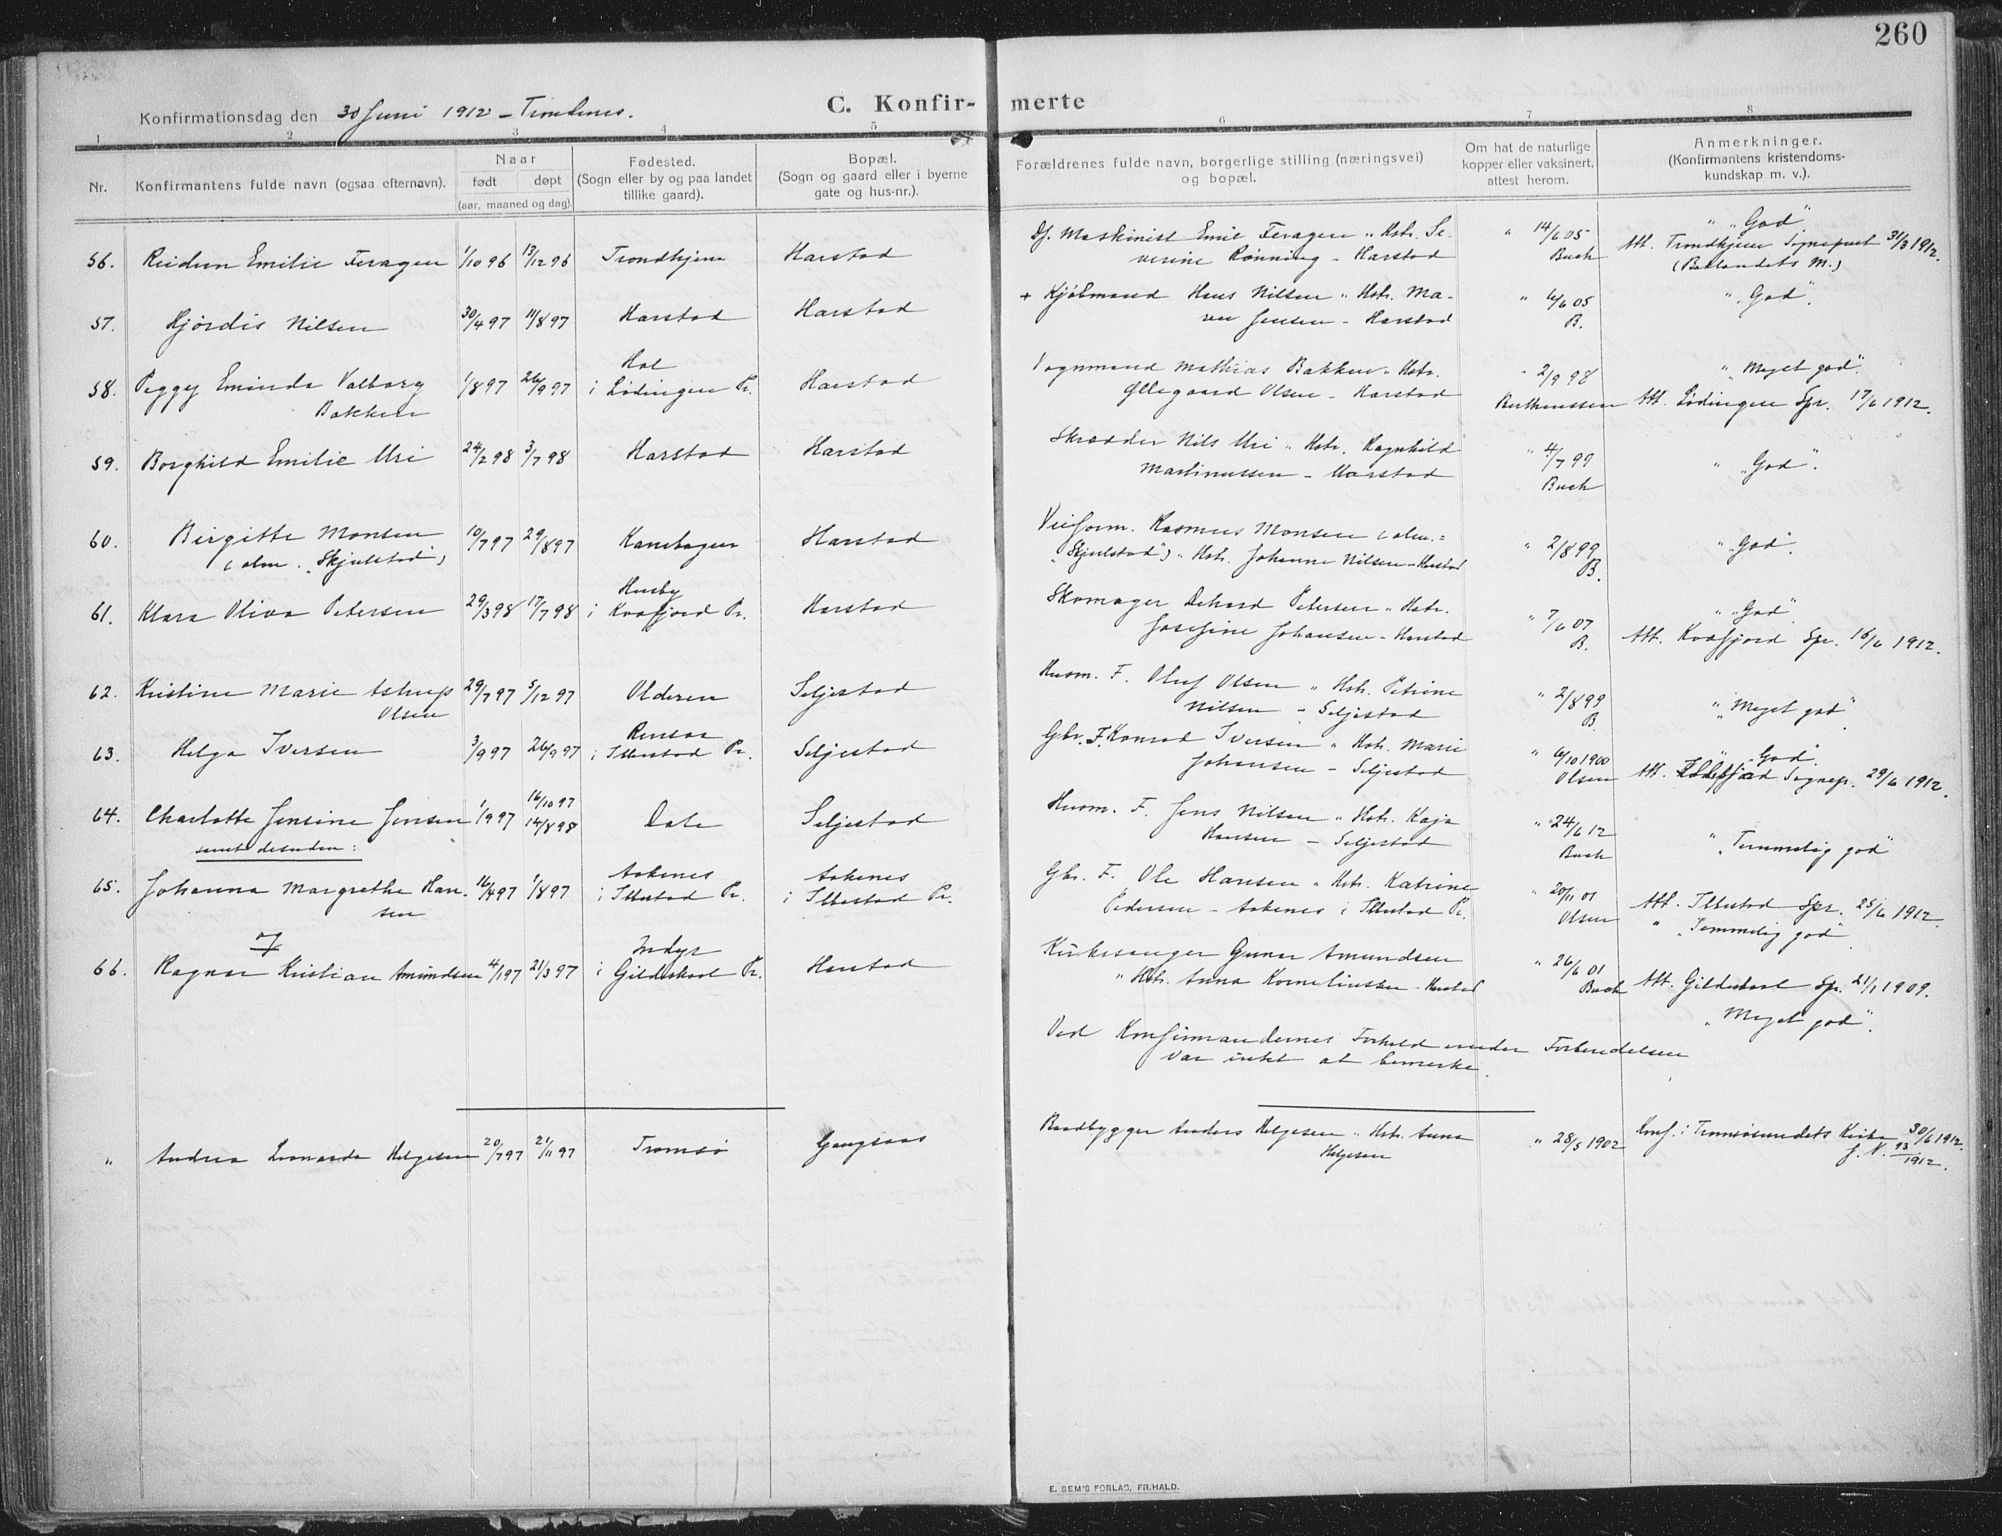 260
Konfirmationsdag den 30 Juni 1912 – Trondenes.
C. Konfir- merte
1 2 3 4 5 6 7 8
Nr.
Konfirmantens fulde navn (ogsaa efternavn).
Naar
født døpt
(aar, maaned og dag).
Fødested.
(Sogn eller by og paa landet
tillike gaard).
Bopæl.
(Sogn og gaard eller i byerne
gate og hus-nr.).
Forældrenes fulde navn, borgerlige stilling (næringsvei)
og bopæl.
Om hat de naturlige
kopper eller vaksinert,
attest herom.
Anmerkninger.
(Konfirmantens kristendoms-
kundskap m. v.).
56. Reidun Emilie Feragen 1/10 96 13/12 96 Trondhjem Harstad Df. Maskinist Emil Feragen " Hstr. Se- " 14/6 05 " "God"
verine Rønning – Harstad Buch Att. Trondhjem Sognepræst 31/3 1912.
(Baklandets M.)
57. Hjørdis Nilsen 30/4 97 11/8 97 Harstad Harstad + Kjøbmand Hans Nilsen " Hstr. Ma- " 6/6 05 " "God".
ren Jensen – Harstad B.
58. Peggy Eminda Valborg 1/8 97 26/9 97 Hol Harstad Vognmand Mathias Bakken " Hstr. " 2/9 98 " "Meget god".
Bakken i Lødingen Pr. Ollegaard Olsen – Harstad Bertheussen Att. Lødingen Spr. 17/6 1912.
59. Borghild Emilie Uri 24/2 98 3/7 98 Harstad Harstad Skrædder Nils Uri " Hstr. Ragnhild " 4/7 99 " "God".
Martinussen – Harstad Buch
60. Birgitte Monsen 10/7 97 29/8 97 Kanebogen Harstad Veiform. Rasmus Monsen (alm. = " 2/8 99 " "God".
(alm. "Skjulstad") "Skjulstad") " Hstr. Johanne Nilsen – Harstad B.
61. Klara Oliva Petersen 29/3 98 17/7 98 Husby Harstad Skomager Dehard Petersen " Hstr. " 7/6 07 " "God".
i Kvæfjord Pr. Josefine Johansen – Harstad B. Att. Kvæfjord Spr. 16/6 1912.
62. Kristine Marie Astrup 29/7 97 5/12 97 Olderen Seljestad Husm. F. Oluf Olsen " Hstr. Petrine " 2/8 99 " "Meget god".
Olsen Nilsen – Seljestad B.
63. Helga Iversen 3/9 97 26/9 97 Rensaa Seljestad Gbr. F. Konrad Iversen " Hstr. Marie " 6/10 1900 " "God".
i Ibbestad Pr. Johansen – Seljestad Olsen Att. Sognep. 29/6 1912.
64. Charlotte Jensine Jensen 1/9 97 16/10 97 14/8 98 Dale Seljestad Husm. F. Jens Nilsen " Hstr. Kaja " 24/6 12
samt desuden: Hansen – Seljestad Buch " "Temmelig god"
65. Johanna Margrethe Han- 16/4 97 1/8 97 Aakenes Aakenes Gbr. F. Ole Hansen " Hstr. Katrine " 20/11 01 Att. Ibbestad Spr. 25/6 1912.
sen i Ibbestad Pr. i Ibbestad Pr. Pedersen – Aakenes i Ibbestad Pr. Olsen " "Temmelig god".
og
66. Ragnar Kristian Amundsen 4/1 97 21/3 97 Indyr Harstad Kirkesanger Gunnar Amundsen " 26/6 01
i Gildeskaal Pr. " Hstr. Anna Kornelinssen – Harstad Buch Att. Gildeskaal Spr. 21/1 1909.
"Meget god".
Ved Konfirmandernes Forhold under Forberedelsen
var intet at bemerke.
" Andrea Leonarda Helgesen 20/7 97 21/11 97 Tromsø Gangsaas Baadbygger Anders Helgesen " Hstr. Anna " 28/5 1902 Konf. i Tromsøsundets Kirke 30/6 1912.
Helgesen J. N. 13/1912.
E. SEM'S FORLAG, FR.HALD.